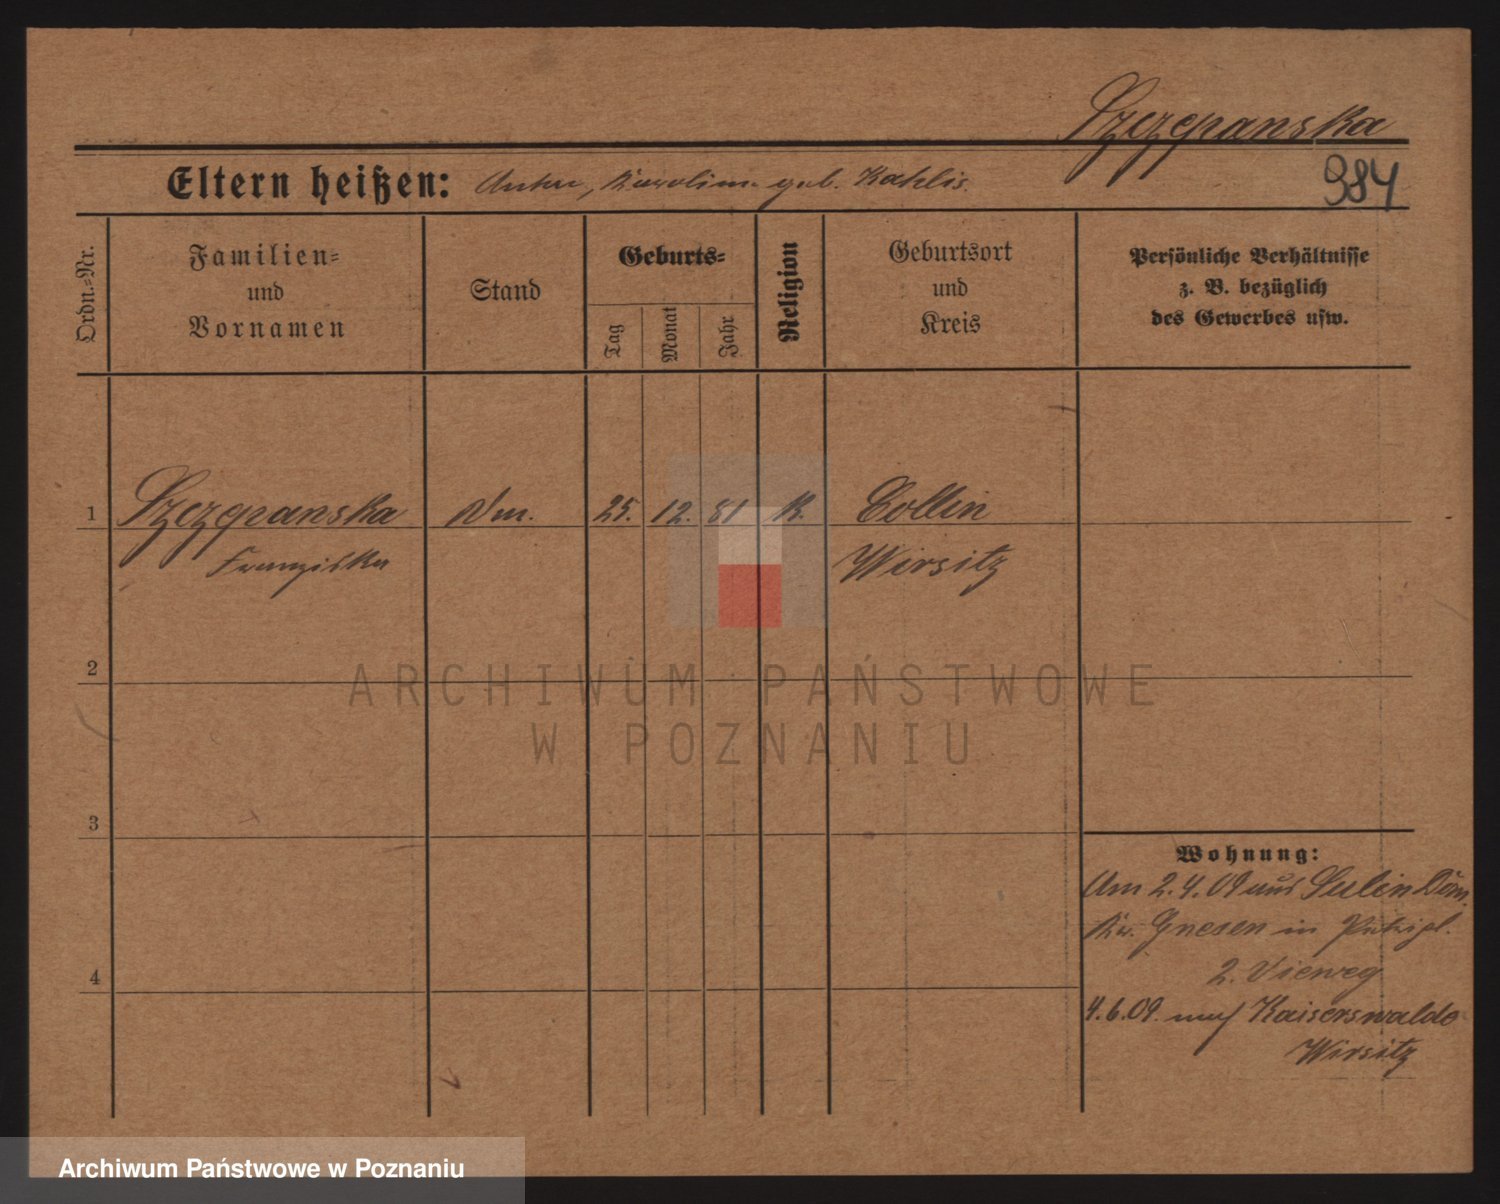 Szczepanska
Eltern heißen: Anton, Karolina geb. Kahlis.
984
Ordn.-Nr.
Familien-
und
Vornamen
Stand
Geburts-
Tag
Monat
Jahr
Religion
Geburtsort
und
Kreis
Persönliche Verhältnisse
z. B. bezüglich
des Gewerbes usw.
1 Szczepanska 25. 12. 81 K. Collin
Franziska Wirsitz
2
3
4
Wohnung:
Am 2.4.09 aus Sulin Dom.
Kr. Gnesen in
2. Vieweg
4.6.09. nach Kaiserswalde
Wirsitz
ARCHIWUM PAŃSTWOWE
W POZNANIU
Archiwum Państwowe w Poznaniu